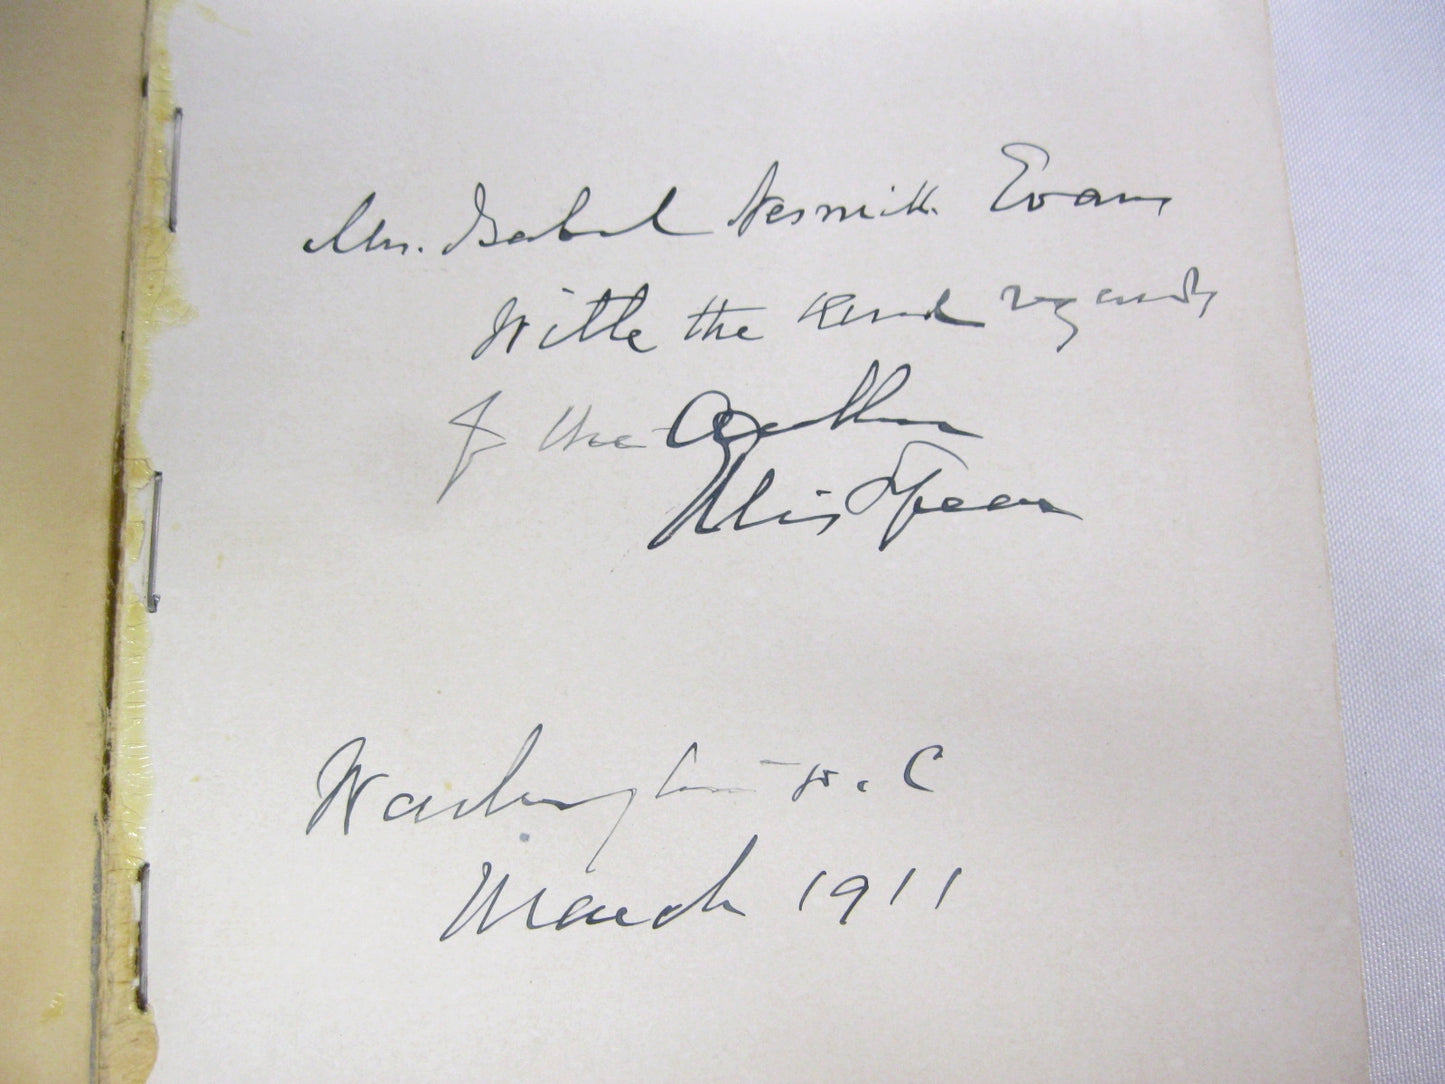 Mrs. Isabel Nesmith Evans
With the kind regards
of the Author
Ellis Spear
Washington D.C
March 1911